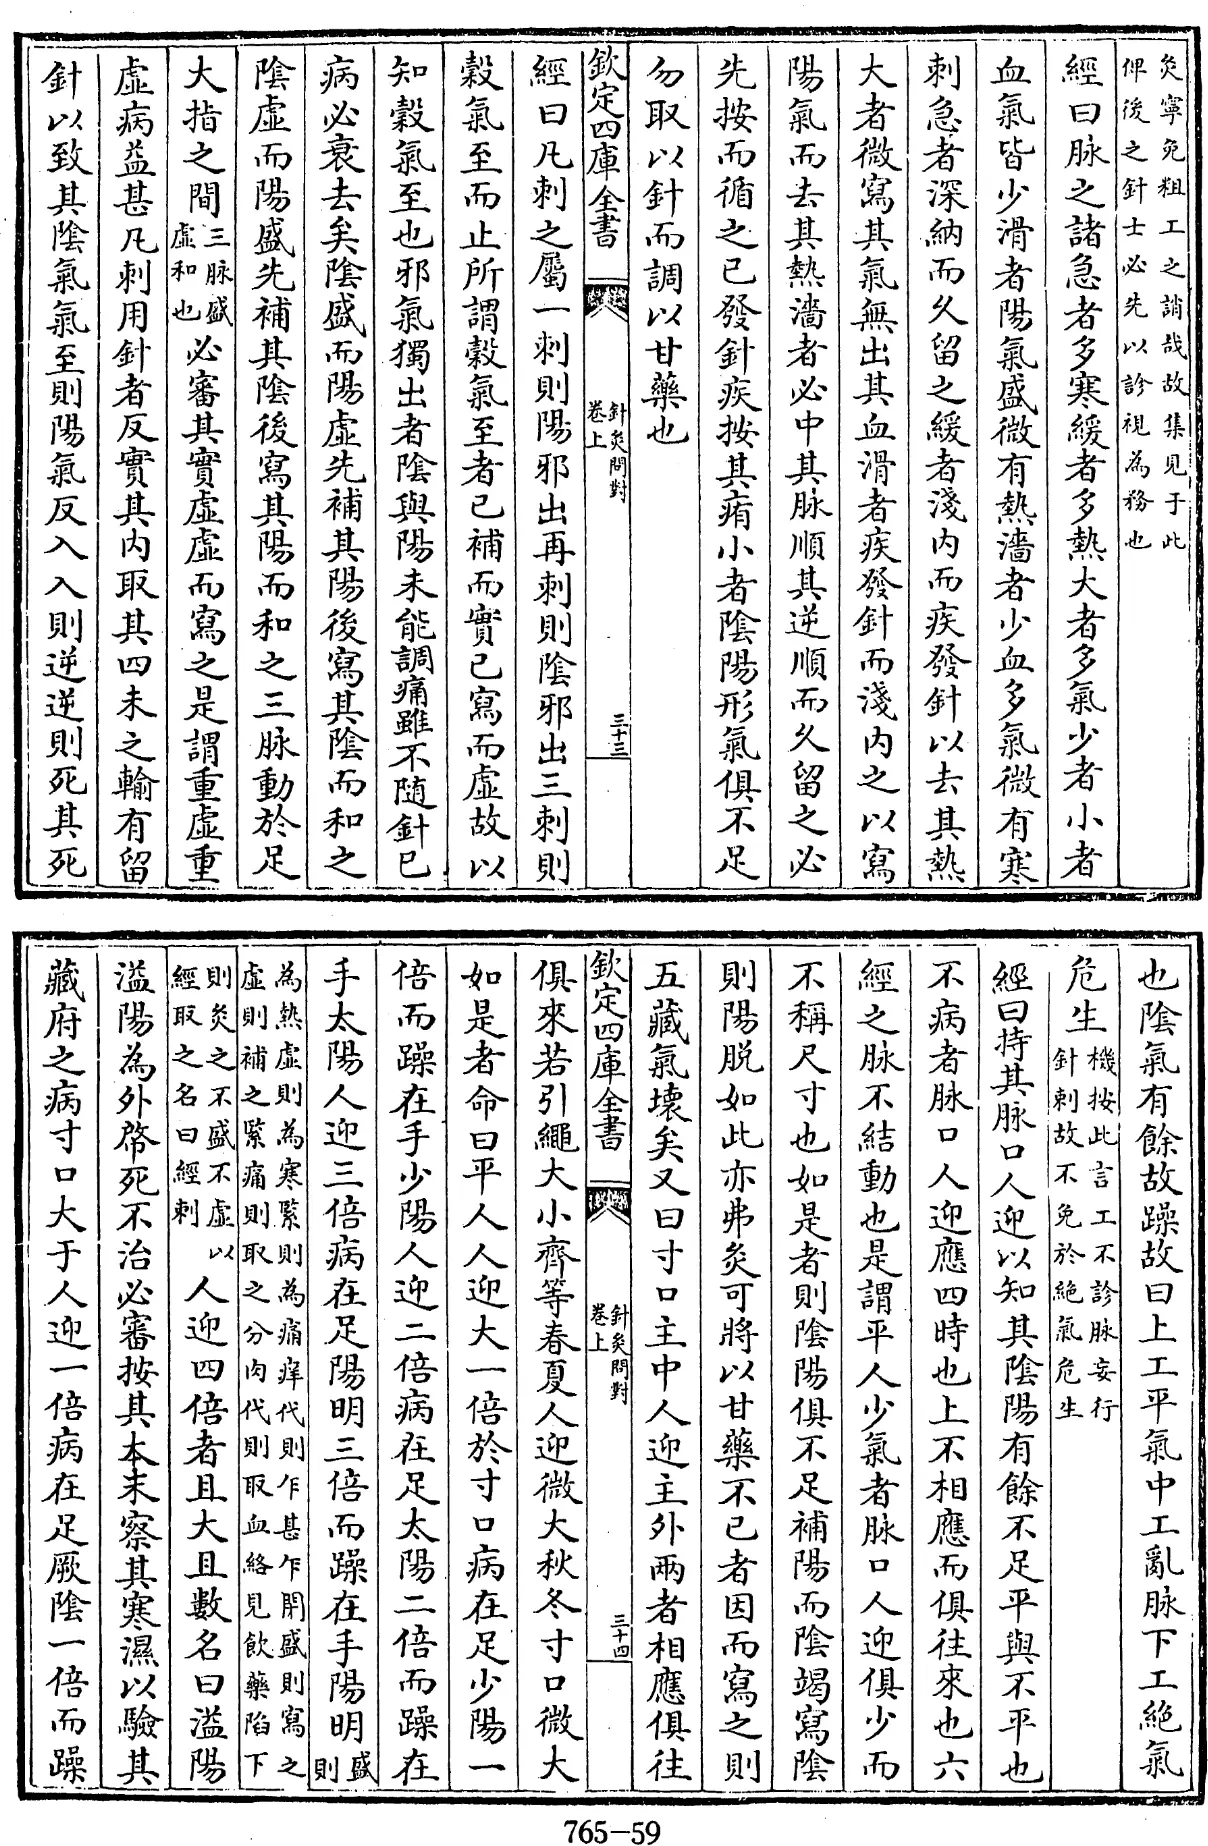 灸寧免粗工之誚哉故集見于此
俾後之針士必先以診視為務也
經曰脉之諸急者多寒緩者多熱大者多氣少者小者
血氣皆少滑者陽氣盛微有熱濇者少血多氣微有寒
刺急者深納而久留之緩者淺内而疾發針以去其熱
大者微寫其氣無出其血滑者疾發針而淺内之以寫
陽氣而去其熱濇者必中其脉順其逆順而久留之必
先按而循之已發針疾按其痏小者陰陽形氣俱不足
勿取以針而調以甘藥也
欽定四庫全書
針灸問對
卷上
三十三
經曰凡刺之屬一刺則陽邪出再刺則陰邪出三刺則
穀氣至而止所謂穀氣至者已補而實已寫而虛故以
知穀氣至也邪氣獨出者陰與陽未能調痛雖不隨針已
病必衰去矣陰盛而陽虛先補其陽後寫其陰而和之
陰虛而陽盛先補其陰後寫其陽而和之三脉動於足
大指之間三脉盛虛和也必審其實虛虛而寫之是謂重虛重
虛病益甚凡刺用針者反實其内取其四末之輸有留
針以致其陰氣氣至則陽氣反入入則逆逆則死其死
也陰氣有餘故躁故曰上工平氣中工亂脉下工絶氣
危生機按此言工不診脉妄行針刺故不免於絶氣危生
經曰持其脉口人迎以知其陰陽有餘不足平與不平也
不病者脉口人迎應四時也上不相應而俱往來也六
經之脉不結動也是謂平人少氣者脉口人迎俱少而
不稱尺寸也如是者則陰陽俱不足補陽而陰竭寫陰
則陽脱如此亦弗灸可將以甘藥不已者因而寫之則
五藏氣壞矣又曰寸口主中人迎主外兩者相應俱往
欽定四庫全書
針灸問對
卷上
三十四
俱來若引繩大小齊等春夏人迎微大秋冬寸口微大
如是者命曰平人人迎大一倍於寸口病在足少陽一
倍而躁在手少陽人迎二倍病在足太陽二倍而躁在
手太陽人迎三倍病在足陽明三倍而躁在手陽明盛則
為熱虛則為寒緊則為痛痺代則乍甚乍間盛則寫之
虛則補之緊痛則取之分肉代則取血絡見飲藥陷下
則灸之不盛不虛以經取之名曰經刺人迎四倍者且大且數名曰溢陽
溢陽為外格死不治必審按其本末察其寒濕以驗其
藏府之病寸口大于人迎一倍病在足厥陰一倍而躁
765-59